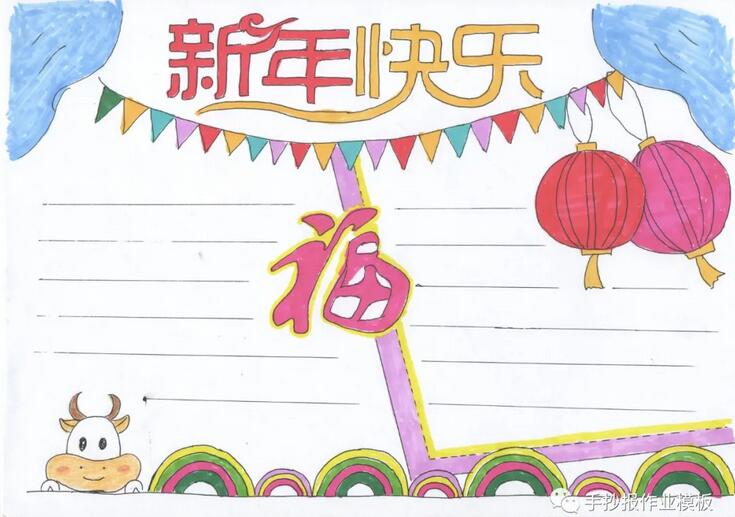 新年快乐
福
手抄报作业模板